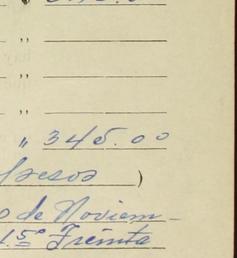 "
"
"
" 345.00
pesos )
o de Noviem-
5º Treinta